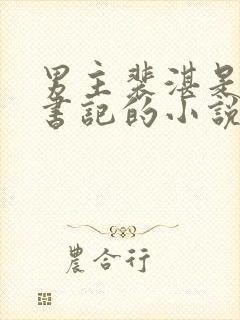 男主裴湛是
書記的小說
農合行